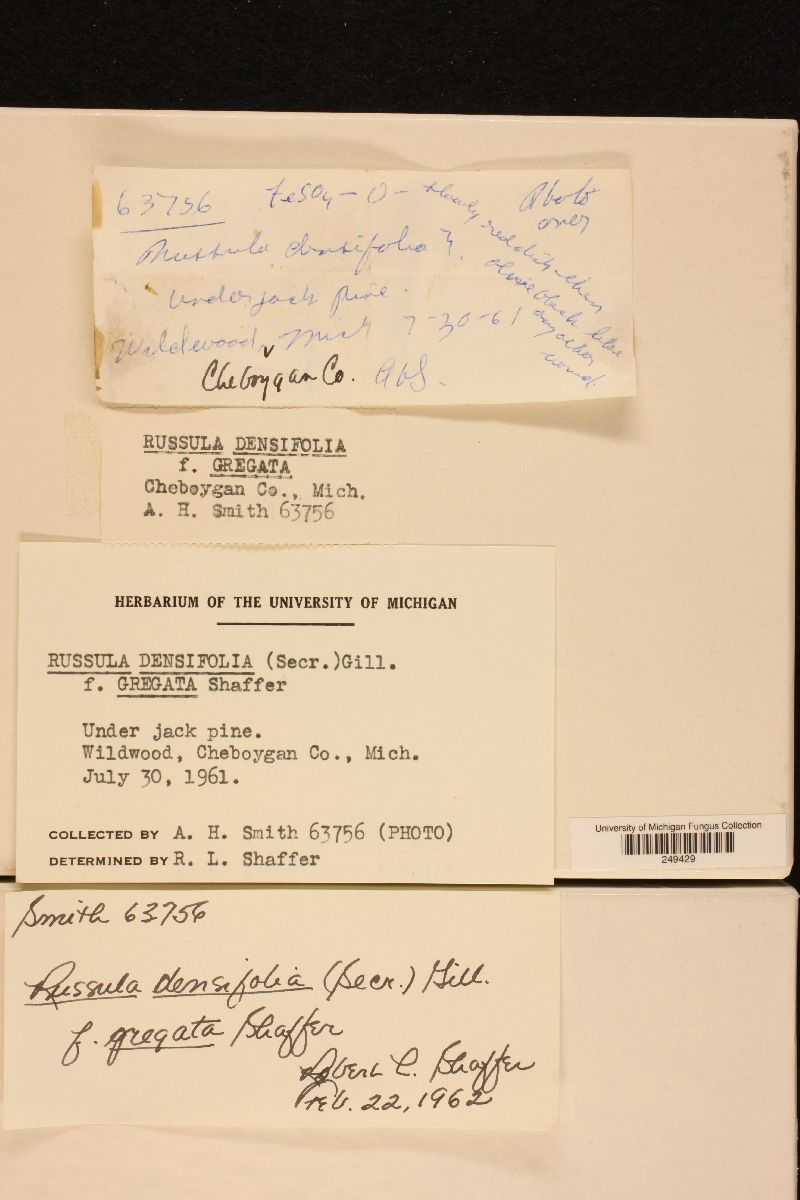 63756 FeSO4 - O - slowly reddish when
Photo
over
Russula densifolia ?.
olive black like
any other
wound.
Under jack pine.
Wildwood, Mich 7-30-61
Cheboygan Co. AHS.
RUSSULA DENSIFOLIA
f. GREGATA
Cheboygan Co., Mich.
A. H. Smith 63756
HERBARIUM OF THE UNIVERSITY OF MICHIGAN
RUSSULA DENSIFOLIA (Secr.)Gill.
f. GREGATA Shaffer
Under jack pine.
Wildwood, Cheboygan Co., Mich.
July 30, 1961.
COLLECTED BY A. H. Smith 63756 (PHOTO)
DETERMINED BY R. L. Shaffer
University of Michigan Fungus Collection
249429
Smith 63756
Russula densifolia (Secr.) Gill.
f. gregata Shaffer
Robert L. Shaffer
Feb. 22, 1962